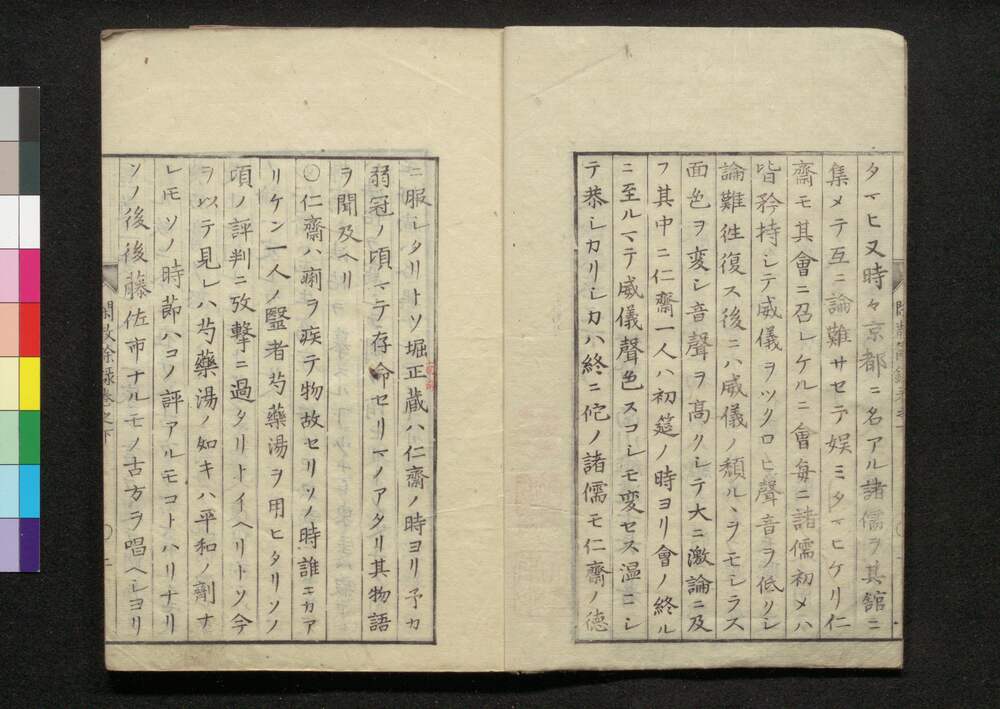 タマヒ又時々京都ニ名アル諸儒ヲ其舘ニ
集メテ互ニ論難サセテ娯ミタマヒケリ仁
齋モ其會ニ召レケルニ會毎ニ諸儒初メハ
皆矜持シテ威儀ヲツクロヒ聲音ヲ低クシ
論難徃復ス後ニハ威儀ノ頽ルヽヲモシラス
面色ヲ変シ音聲ヲ高クシテ大ニ激論ニ及
フ其中ニ仁齋一人ハ初筵ノ時ヨリ會ノ終ル
ニ至ルマテ威儀聲色スコシモ変セス温ニシ
テ恭シカリシカハ終ニ佗ノ諸儒モ仁齋ノ德
ニ服シタリトソ堀正蔵ハ仁齋ノ時ヨリ予カ
弱冠ノ項マテ存命セリマノアタリ其物語
ヲ聞及ヘリ
〇仁齋ハ痢ヲ疾テ物故セリソノ時誰ニカア
リケン一人ノ毉者芍藥湯ヲ用ヒタリソノ
項ノ評判ニ攻撃ニ過タリトイヘリトソ今
ヲ以テ見レハ芍藥湯ノ如キハ平和ノ劑ナ
レモソノ時莭ハコノ評アルモコトハリナリ
ソノ後後藤佐市ナルモノ古方ヲ唱ヘシヨリ
閑散余録巻之下